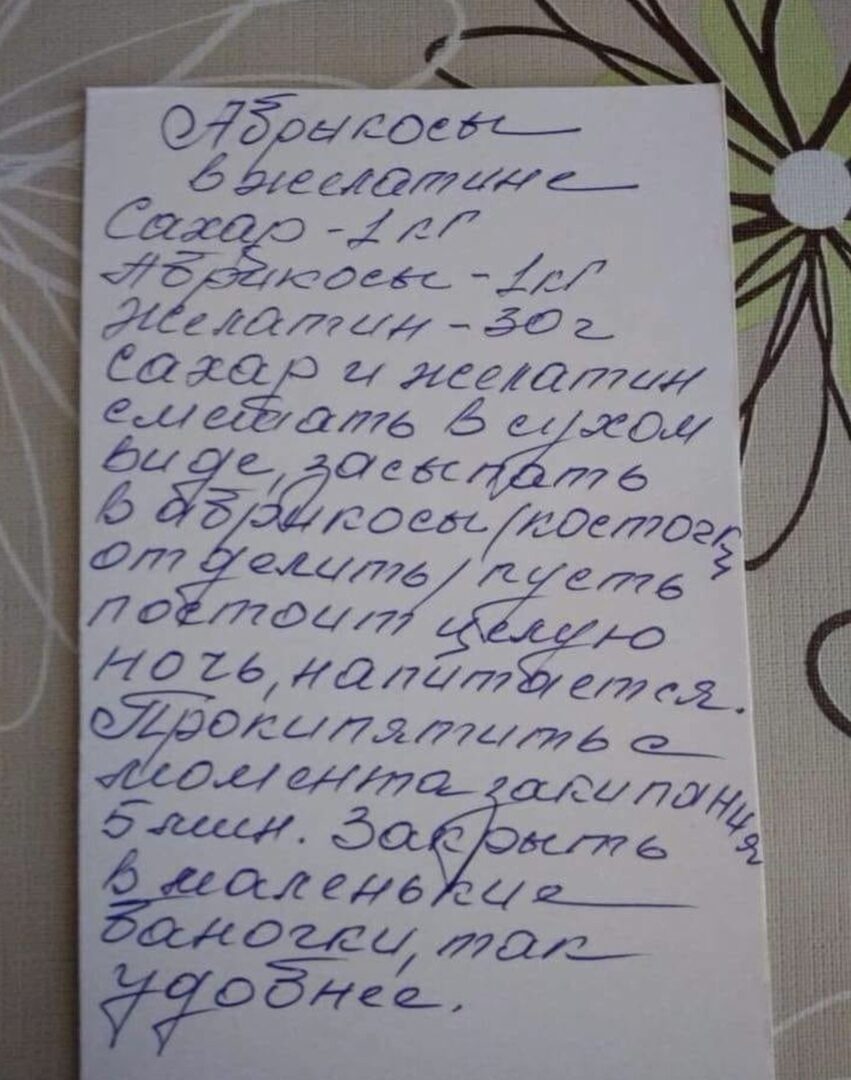 Абрыкосы
в желатине
Сахар - 1 кг
Абрикосы - 1 кг
Желатин - 30 г
Сахар и желатин
смешать в сухом
виде, засыпать
в абрикосы /косточки
отделить/ пусть
постоит целую
ночь, напитается.
Прокипятить с
момента закипания
5 мин. Закрыть
в маленькие
баночки, так
удобнее.